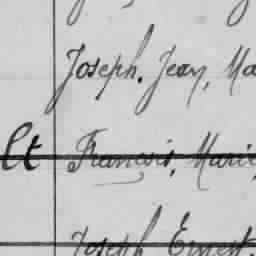 Joseph, Jean, Ma
et François, Marie,
Joseph Ernest,